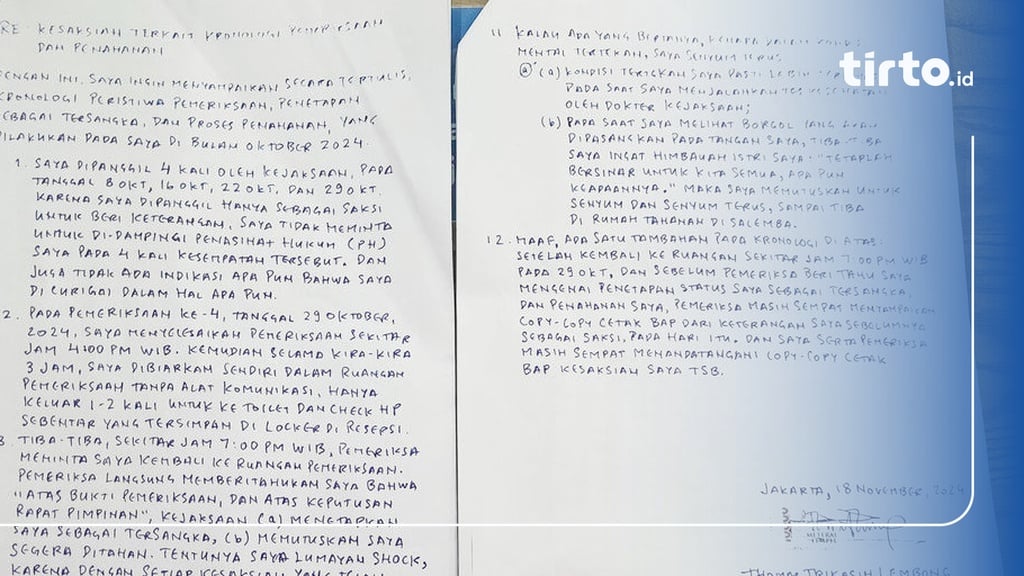 RE: KESAKSIAN TERKAIT KRONOLOGI PEMERIKSAAN
DAN PENAHANAN
DENGAN INI, SAYA INGIN MENYAMPAIKAN SECARA TERTULIS,
KRONOLOGI PERISTIWA PEMERIKSAAN, PENETAPAN
SEBAGAI TERSANGKA, DAN PROSES PENAHANAN, YANG
DILAKUKAN PADA SAYA DI BULAN OKTOBER 2024.
1. SAYA DIPANGGIL 4 KALI OLEH KEJAKSAAN, PADA
TANGGAL 8 OKT, 16 OKT, 22 OKT, DAN 29 OKT.
KARENA SAYA DIPANGGIL HANYA SEBAGAI SAKSI
UNTUK BERI KETERANGAN, SAYA TIDAK MEMINTA
UNTUK DI-DAMPINGI PENASIHAT HUKUM (PH)
SAYA PADA 4 KALI KESEMPATAN TERSEBUT. DAN
JUGA TIDAK ADA INDIKASI APA PUN BAHWA SAYA
DI CURIGAI DALAM HAL APA PUN.
2. PADA PEMERIKSAAN KE-4, TANGGAL 29 OKTOBER,
2024, SAYA MENYELESAIKAN PEMERIKSAAN SEKITAR
JAM 4:00 PM WIB. KEMUDIAN SELAMA KIRA-KIRA
3 JAM, SAYA DIBIARKAN SENDIRI DALAM RUANGAN
PEMERIKSAAN TANPA ALAT KOMUNIKASI, HANYA
KELUAR 1-2 KALI UNTUK KE TOILET DAN CHECK HP
SEBENTAR YANG TERSIMPAN DI LOCKER DI RESEPSI.
3. TIBA-TIBA, SEKITAR JAM 7:00 PM WIB, PEMERIKSA
MEMINTA SAYA KEMBALI KE RUANGAN PEMERIKSAAN.
PEMERIKSA LANGSUNG MEMBERITAHUKAN SAYA BAHWA
"ATAS BUKTI PEMERIKSAAN, DAN ATAS KEPUTUSAN
RAPAT PIMPINAN", KEJAKSAAN (a) MENETAPKAN
SAYA SEBAGAI TERSANGKA, (b) MEMUTUSKAN SAYA
SEGERA DITAHAN. TENTUNYA SAYA LUMAYAN SHOCK,
KARENA DENGAN SETIAP KESAKSIAN YANG TELAH
11. KALAU ADA YANG BERTANYA, KENAPA DALAM KONDISI
MENTAL TERTEKAN, SAYA SENYUM TERUS
(a) KONDISI TERTEKAN SAYA PASTI LEBIH
PADA SAAT SAYA MENJALANKAN TES KESEHATAN
OLEH DOKTER KEJAKSAAN;
(b) PADA SAAT SAYA MELIHAT BORGOL YANG AKAN
DIPASANGKAN PADA TANGAN SAYA, TIBA-TIBA
SAYA INGAT HIMBAUAN ISTRI SAYA: "TETAPLAH
BERSINAR UNTUK KITA SEMUA, APA PUN
KEADAANNYA." MAKA SAYA MEMUTUSKAN UNTUK
SENYUM DAN SENYUM TERUS, SAMPAI TIBA
DI RUMAH TAHANAN DI SALEMBA.
12. MAAF, ADA SATU TAMBAHAN PADA KRONOLOGI DI ATAS:
SETELAH KEMBALI KE RUANGAN SEKITAR JAM 7:00 PM WIB
PADA 29 OKT, DAN SEBELUM PEMERIKSA BERI TAHU SAYA
MENGENAI PENETAPAN STATUS SAYA SEBAGAI TERSANGKA,
DAN PENAHANAN SAYA, PEMERIKSA MASIH SEMPAT MENYAMPAIKAN
COPY-COPY CETAK BAP DARI KETERANGAN SAYA SEBELUMNYA
SEBAGAI SAKSI, PADA HARI ITU. DAN SAYA SERTA PEMERIKSA
MASIH SEMPAT MENANDATANGANI COPY-COPY CETAK
BAP KESAKSIAN SAYA TSB.
JAKARTA, 18 NOVEMBER, 2024
THOMAS TRIKASIH LEMBONG
tirto.id